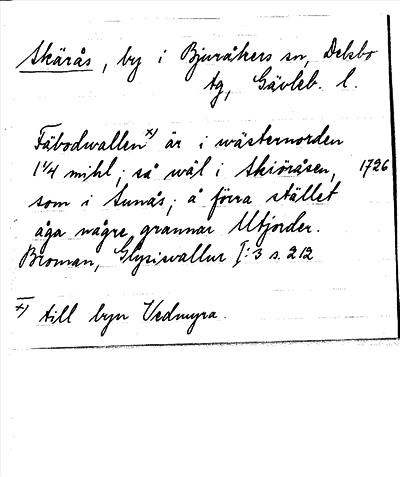 Skärås, by i Bjuråkers sn, Delsbo
tg, Gävleb. l.
Fäbodwallen x) är i wästernorden
1 1/4 mihl; så wäl i Skiöråsen, 1726
som i Sunås; å förra stället
äga någre grannar Utjorder.
Broman, Glysisvallur I:3 s. 212
x) till byn Vedmyra.